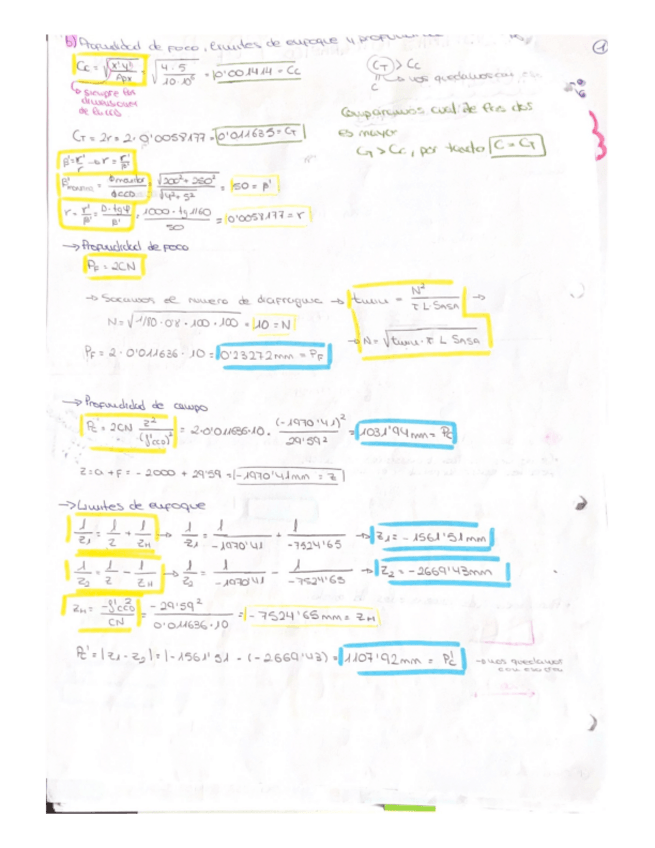 b) Profundidad de foco, límites de enfoque y
①
Cc = √(x'y'/Npx) = √(4·5/10·10⁶) = 0'001414 = Cc
↳ siempre
de foco
C_T > Cc
C ↳ nos quedamos con
Comparamos cual de los dos
es mayor
C_T > Cc, por tanto C = C_T
C_T = 2r = 2·0'0058177 = 0'011635 = C_T
β' = r'/r → r = r'/β'
β' = / CCD = √(200² + 250²)/√(4² + 5²) = 50 = β'
r = r'/β' = D·tgφ/β' = 1000·tg 1/60 / 50 = 0'0058177 = r
→ Profundidad de foco
P_F = 2CN
→ Sacamos el numero de diafragma → = N²/τ·L·SASA →
N = √(1/80·0'8·100·100) = 10 = N
→ N = √(·τ·L·SASA)
P_F = 2·0'011636·10 = 0'23272mm = P_F
→ Profundidad de campo
Pc' = 2CN z²/(f'CCD)² = 2·0'011636·10·(-1970'41)²/29'59² = 1031'94mm = Pc'
z = a + F = -2000 + 29'59 = -1970'41mm = z
→ Límites de enfoque
1/z₁ = 1/z + 1/z_H → 1/z₁ = 1/-1970'41 + 1/-7524'65 → z₁ = -1561'51mm
1/z₂ = 1/z - 1/z_H → 1/z₂ = 1/-1970'41 - 1/-7524'65 → z₂ = -2669'43mm
z_H = -f'CCD²/CN = -29'59²/0'011636·10 = -7524'65mm = z_H
Pc' = |z₁ - z₂| = |-1561'51 - (-2669'43) = 1107'92mm = Pc'
→ nos quedamos
con